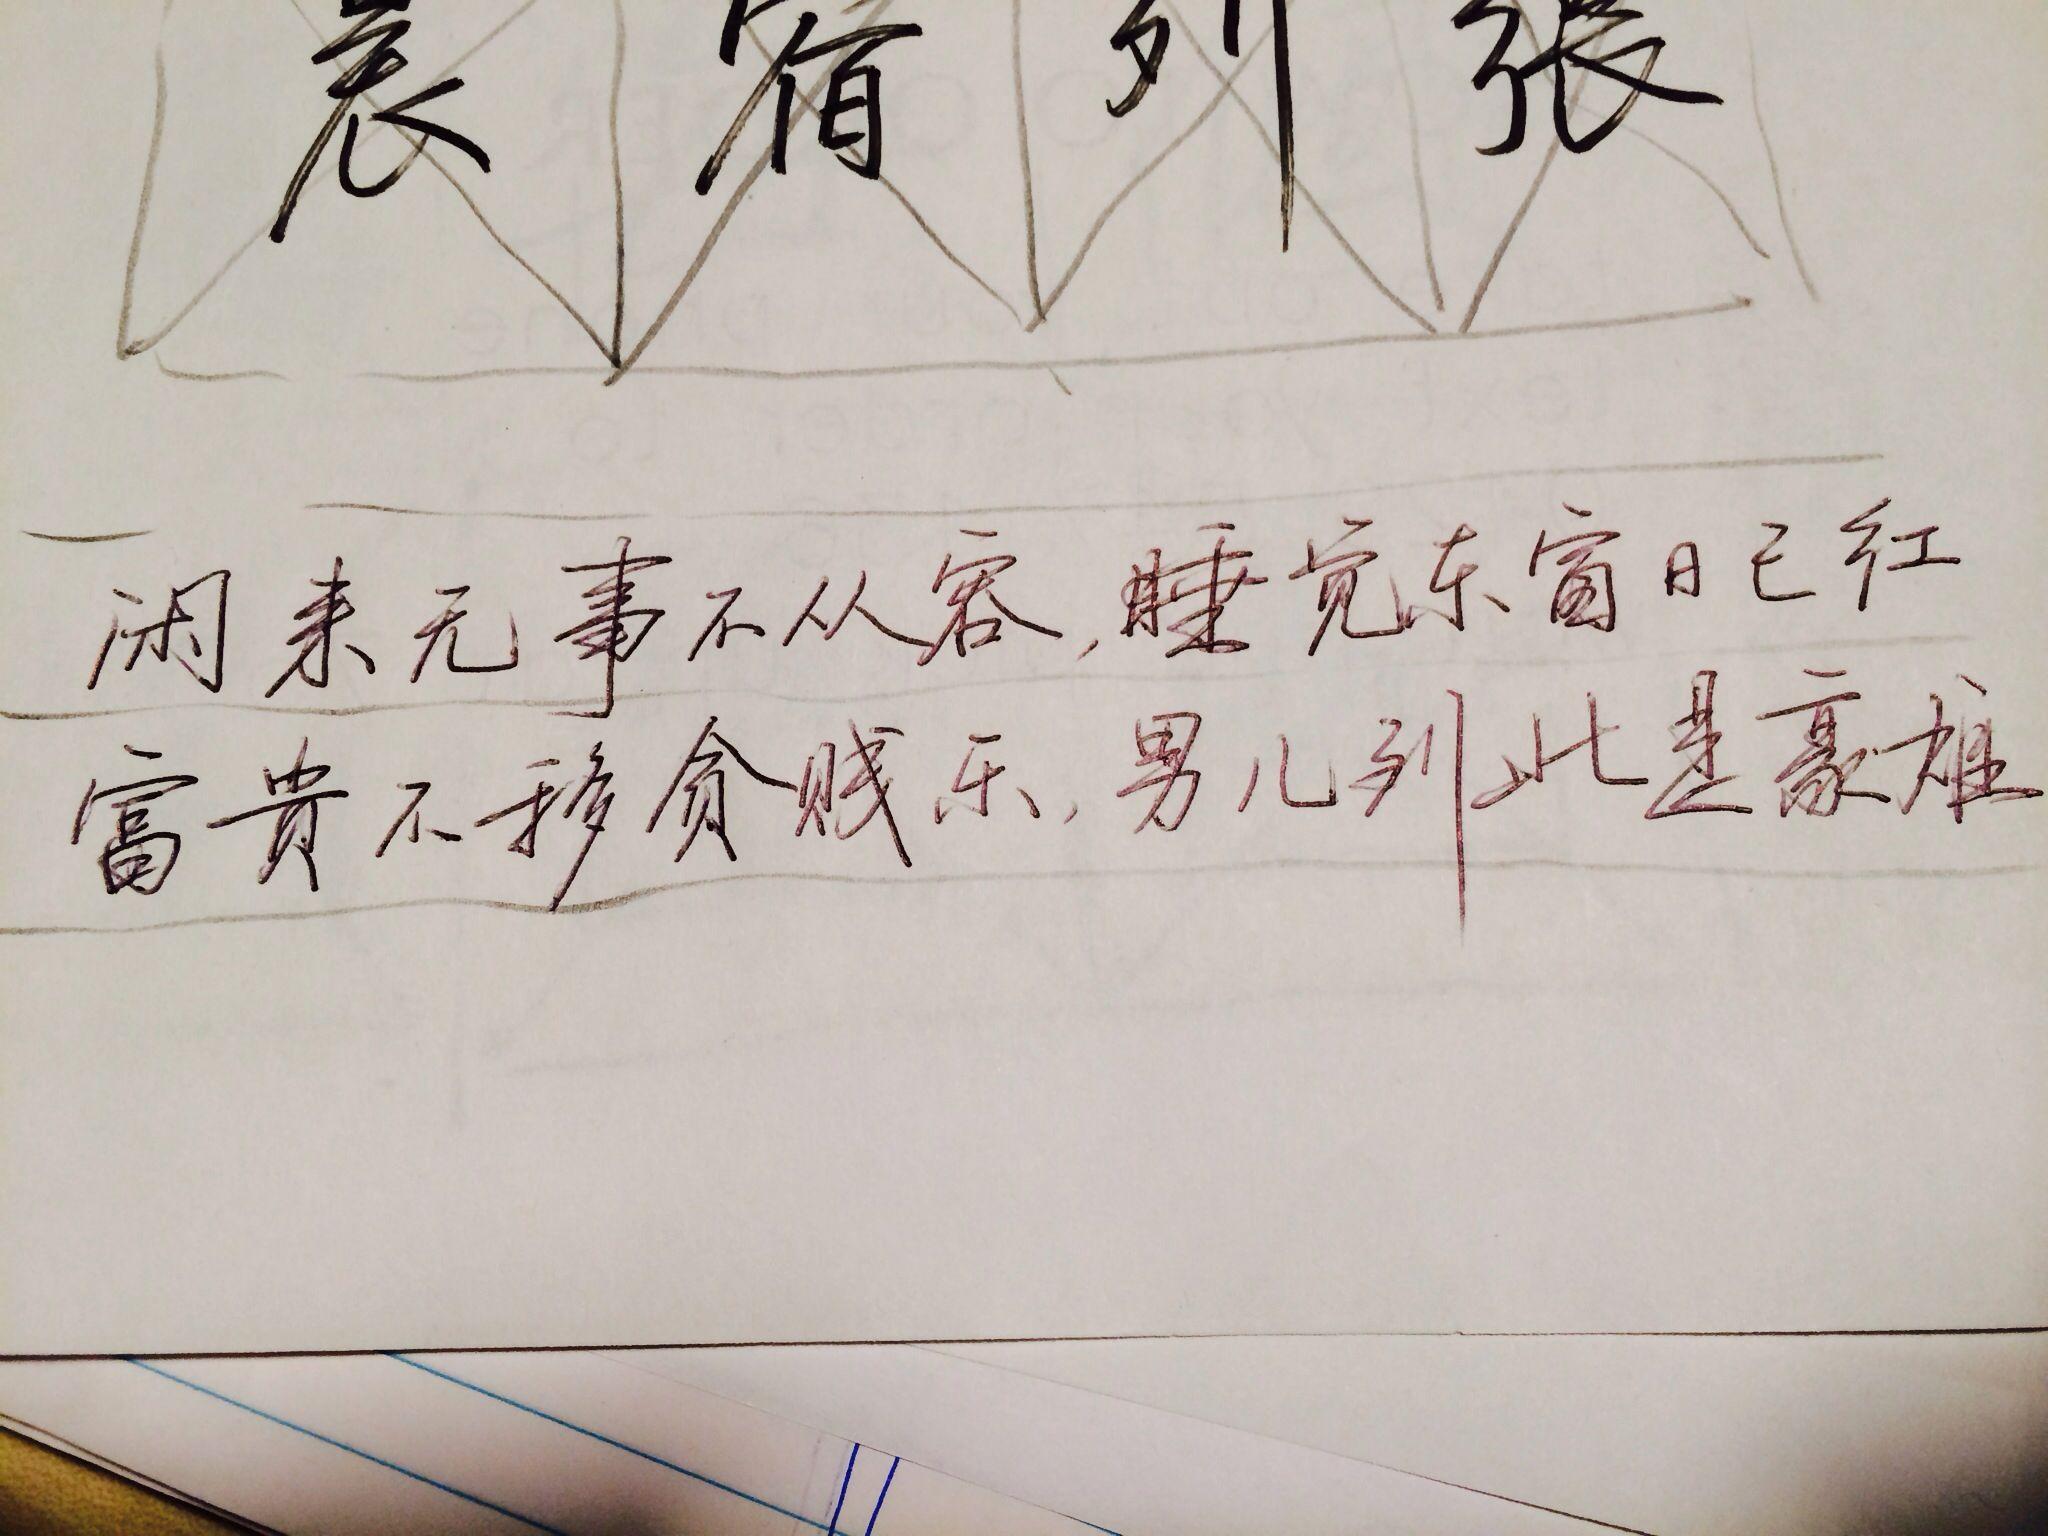 辰宿列張
闲来无事不从容,睡觉东窗日已红
富贵不移贪贱乐,男儿到此是豪雄